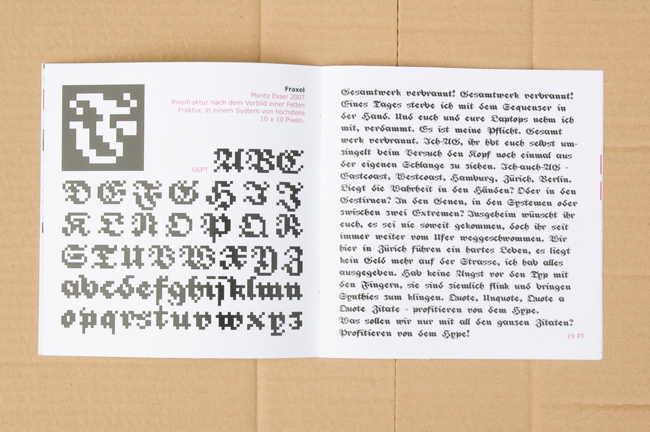 Fraxel
Moritz Esser 2007
Pixelfraktur nach dem Vorbild einer Fetten
Fraktur, in einem System von höchstens
10 x 10 Pixeln.
66PT
ABC
DEFGHIJ
KLMNOPQR
STUVWXYZ
abcdefghijklmn
opqrstuvwxyz
Gesamtwerk verbrannt! Gesamtwerk verbrannt!
Eines Tages sterbe ich mit dem Sequenzer in
der Hand. Und euch und eure Laptops nehm ich
mit, verdammt. Es ist meine Pflicht. Gesamt
werk verbrannt. Ich-AG, ihr habt euch selbst um-
zingelt beim Versuch den Kopf noch einmal aus
der eigenen Schlange zu ziehen. Ich-auch-AG -
Eastcoast, Westcoast, Hamburg, Zürich, Berlin.
Liegt die Wahrheit in den Händen? Oder in den
Gestirnen? In den Genen, in den Systemen oder
zwischen zwei Extremen? Insgeheim wünscht ihr
euch, es sei nie soweit gekommen, doch ihr seit
immer weiter vom Ufer weggeschwommen. Wir
hier in Zürich führen ein hartes Leben, es liegt
kein Geld mehr auf der Strasse, ich hab alles
ausgegeben. Hab keine Angst vor den Typ mit
den Fingern, sie sind ziemlich flink und bringen
Synthies zum klingen. Quote, Unquote, Quote a
Quote Zitate - profitieren von dem Hype.
Was sollen wir nur mit all den ganzen Zitaten?
Profitieren von dem Hype!
19 PT